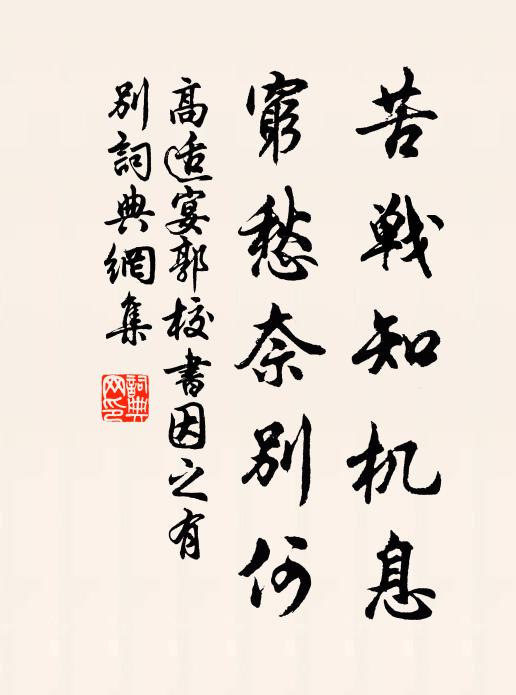 苦戦知机息
窮愁奈別何
高适宴郭校書因之有
別詞典網集
詞典
网印